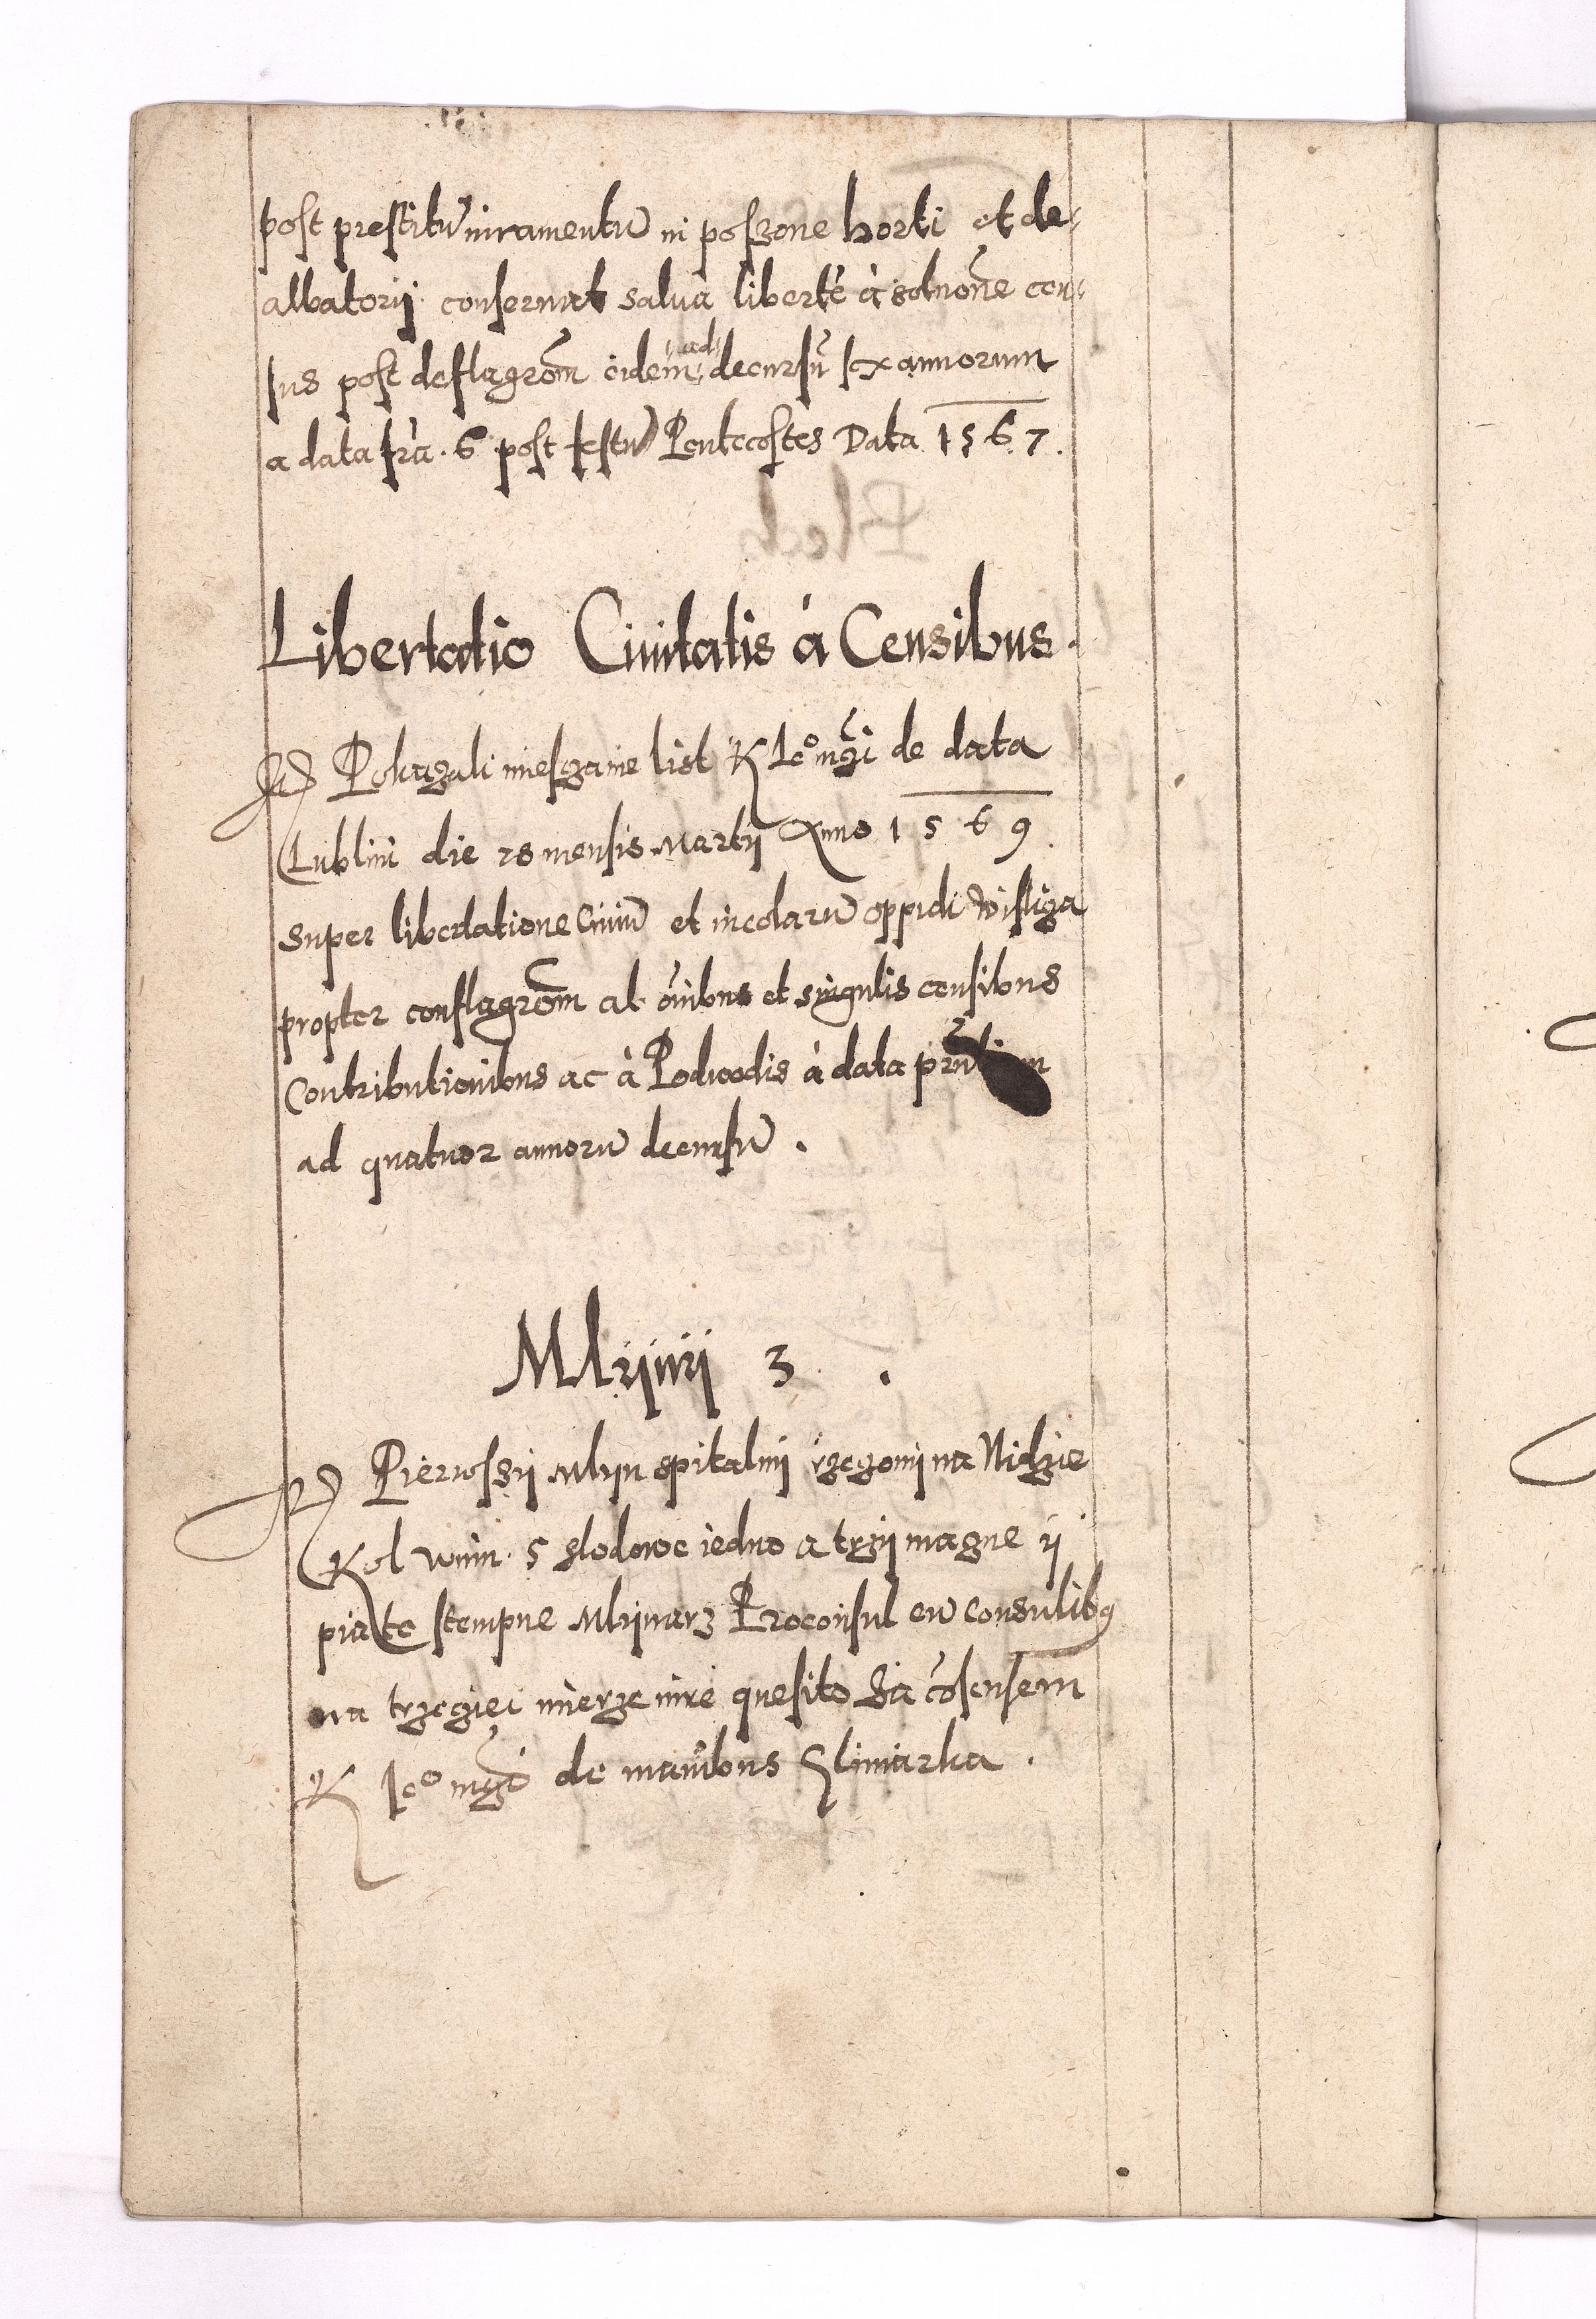 post prestitū iuramentū in poſszone horti et de⸗
albatorij conſeruat salua liberte à solnone cen⸗
ſus poſt deflagrōm eidem ad decurſū ſex annorum
a data fra. 6 poſt feſtū Pentecoſtes Data 1567.
Libertatio Ciuitatis à Censibus.
It Pokazali mieſzanie list K Ieº mζi de data
Lublini die 28 menſis Martij Anno 1569.
super libertatione Ciuiū et incolarū oppidi Wiſliza
propter conflagrōm ab oībus et singulis cenſibus
Contributionibus ac à Podwodis à data pñtium
ad quatuor annorū decurſū.
Mlijnij 3.
It Pierwſzij Mlijn spitalnij rzegonij na Nidzie
Kol wnim 5 slodowe iedno a trzij mazne ij
piate stempne Mlijnarz Proconsul cū Consulibꝯ
na trzeziei mierze iure quesito za cōsensem
K Ieº mζi de manibus Slimarka.